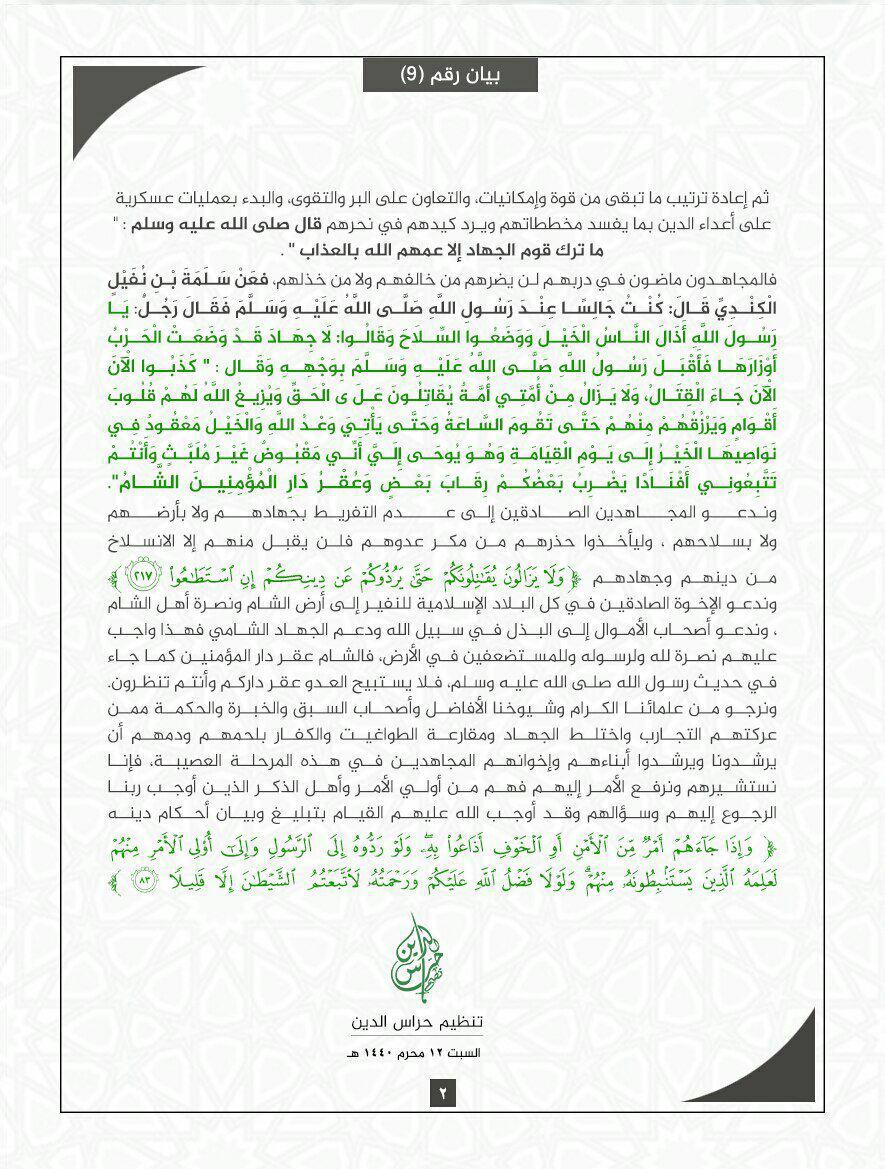 بيان رقم (9)
ثم إعادة ترتيب ما تبقى من قوة وإمكانيات، والتعاون على البر والتقوى، والبدء بعمليات عسكرية
على أعداء الدين بما يفسد مخططاتهم ويرد كيدهم في نحرهم قال صلى الله عليه وسلم : "
ما ترك قوم الجهاد إلا عمهم الله بالعذاب " .
فالمجاهدون ماضون في دربهم لن يضرهم من خالفهم ولا من خذلهم، فعَنْ سَلَمَةَ بْنِ نُفَيْلٍ
الْكِنْدِيِّ قَالَ: كُنْتُ جَالِسًا عِنْدَ رَسُولِ اللهِ صَلَّى اللهُ عَلَيْهِ وَسَلَّمَ فَقَالَ رَجُلٌ: يَا
رَسُولَ اللهِ أَذَالَ النَّاسُ الْخَيْلَ وَوَضَعُوا السِّلَاحَ وَقَالُوا: لَا جِهَادَ قَدْ وَضَعَتْ الْحَرْبُ
أَوْزَارَهَا فَأَقْبَلَ رَسُولُ اللهِ صَلَّى اللهُ عَلَيْهِ وَسَلَّمَ بِوَجْهِهِ وَقَالَ : " كَذَبُوا الْآنَ
الْآنَ جَاءَ الْقِتَالُ، وَلَا يَزَالُ مِنْ أُمَّتِي أُمَّةٌ يُقَاتِلُونَ عَلَ ى الْحَقِّ وَيُزِيغُ اللهُ لَهُمْ قُلُوبَ
أَقْوَامٍ وَيَرْزُقُهُمْ مِنْهُمْ حَتَّى تَقُومَ السَّاعَةُ وَحَتَّى يَأْتِيَ وَعْدُ اللهِ وَالْخَيْلُ مَعْقُودٌ فِي
نَوَاصِيهَا الْخَيْرُ إِلَى يَوْمِ الْقِيَامَةِ وَهُوَ يُوحَى إِلَيَّ أَنِّي مَقْبُوضٌ غَيْرَ مُلَبَّثٍ وَأَنْتُمْ
تَتَّبِعُونِي أَفْنَادًا يَضْرِبُ بَعْضُكُمْ رِقَابَ بَعْضٍ وَعُقْرُ دَارِ الْمُؤْمِنِينَ الشَّامُ".
وندعو المجاهدين الصادقين إلى عدم التفريط بجهادهم ولا بأرضهم
ولا بسلاحهم ، وليأخذوا حذرهم من مكر عدوهم فلن يقبل منهم إلا الانسلاخ
من دينهم وجهادهم ﴿ وَلَا يَزَالُونَ يُقَٰتِلُونَكُمْ حَتَّىٰ يَرُدُّوكُمْ عَن دِينِكُمْ إِنِ ٱسْتَطَٰعُوا۟ ٢١٧ ﴾
وندعو الإخوة الصادقين في كل البلاد الإسلامية للنفير إلى أرض الشام ونصرة أهل الشام
، وندعو أصحاب الأموال إلى البذل في سبيل الله ودعم الجهاد الشامي فهذا واجب
عليهم نصرة لله ولرسوله وللمستضعفين في الأرض، فالشام عقر دار المؤمنين كما جاء
في حديث رسول الله صلى الله عليه وسلم، فلا يستبيح العدو عقر داركم وأنتم تنظرون.
ونرجو من علمائنا الكرام وشيوخنا الأفاضل وأصحاب السبق والخبرة والحكمة ممن
عركتهم التجارب واختلط الجهاد ومقارعة الطواغيت والكفار بلحمهم ودمهم أن
يرشدونا ويرشدوا أبناءهم وإخوانهم المجاهدين في هذه المرحلة العصيبة، فإنا
نستشيرهم ونرفع الأمر إليهم فهم من أولي الأمر وأهل الذكر الذين أوجب ربنا
الرجوع إليهم وسؤالهم وقد أوجب الله عليهم القيام بتبليغ وبيان أحكام دينه
﴿ وَإِذَا جَآءَهُمْ أَمْرٌ مِّنَ ٱلْأَمْنِ أَوِ ٱلْخَوْفِ أَذَاعُوا۟ بِهِۦ وَلَوْ رَدُّوهُ إِلَى ٱلرَّسُولِ وَإِلَىٰٓ أُو۟لِى ٱلْأَمْرِ مِنْهُمْ
لَعَلِمَهُ ٱلَّذِينَ يَسْتَنۢبِطُونَهُۥ مِنْهُمْ وَلَوْلَا فَضْلُ ٱللَّهِ عَلَيْكُمْ وَرَحْمَتُهُۥ لَٱتَّبَعْتُمُ ٱلشَّيْطَٰنَ إِلَّا قَلِيلًا ٨٣ ﴾
حراس الدين
تنظيم حراس الدين
السبت ١٢ محرم ١٤٤٠ هـ
٢